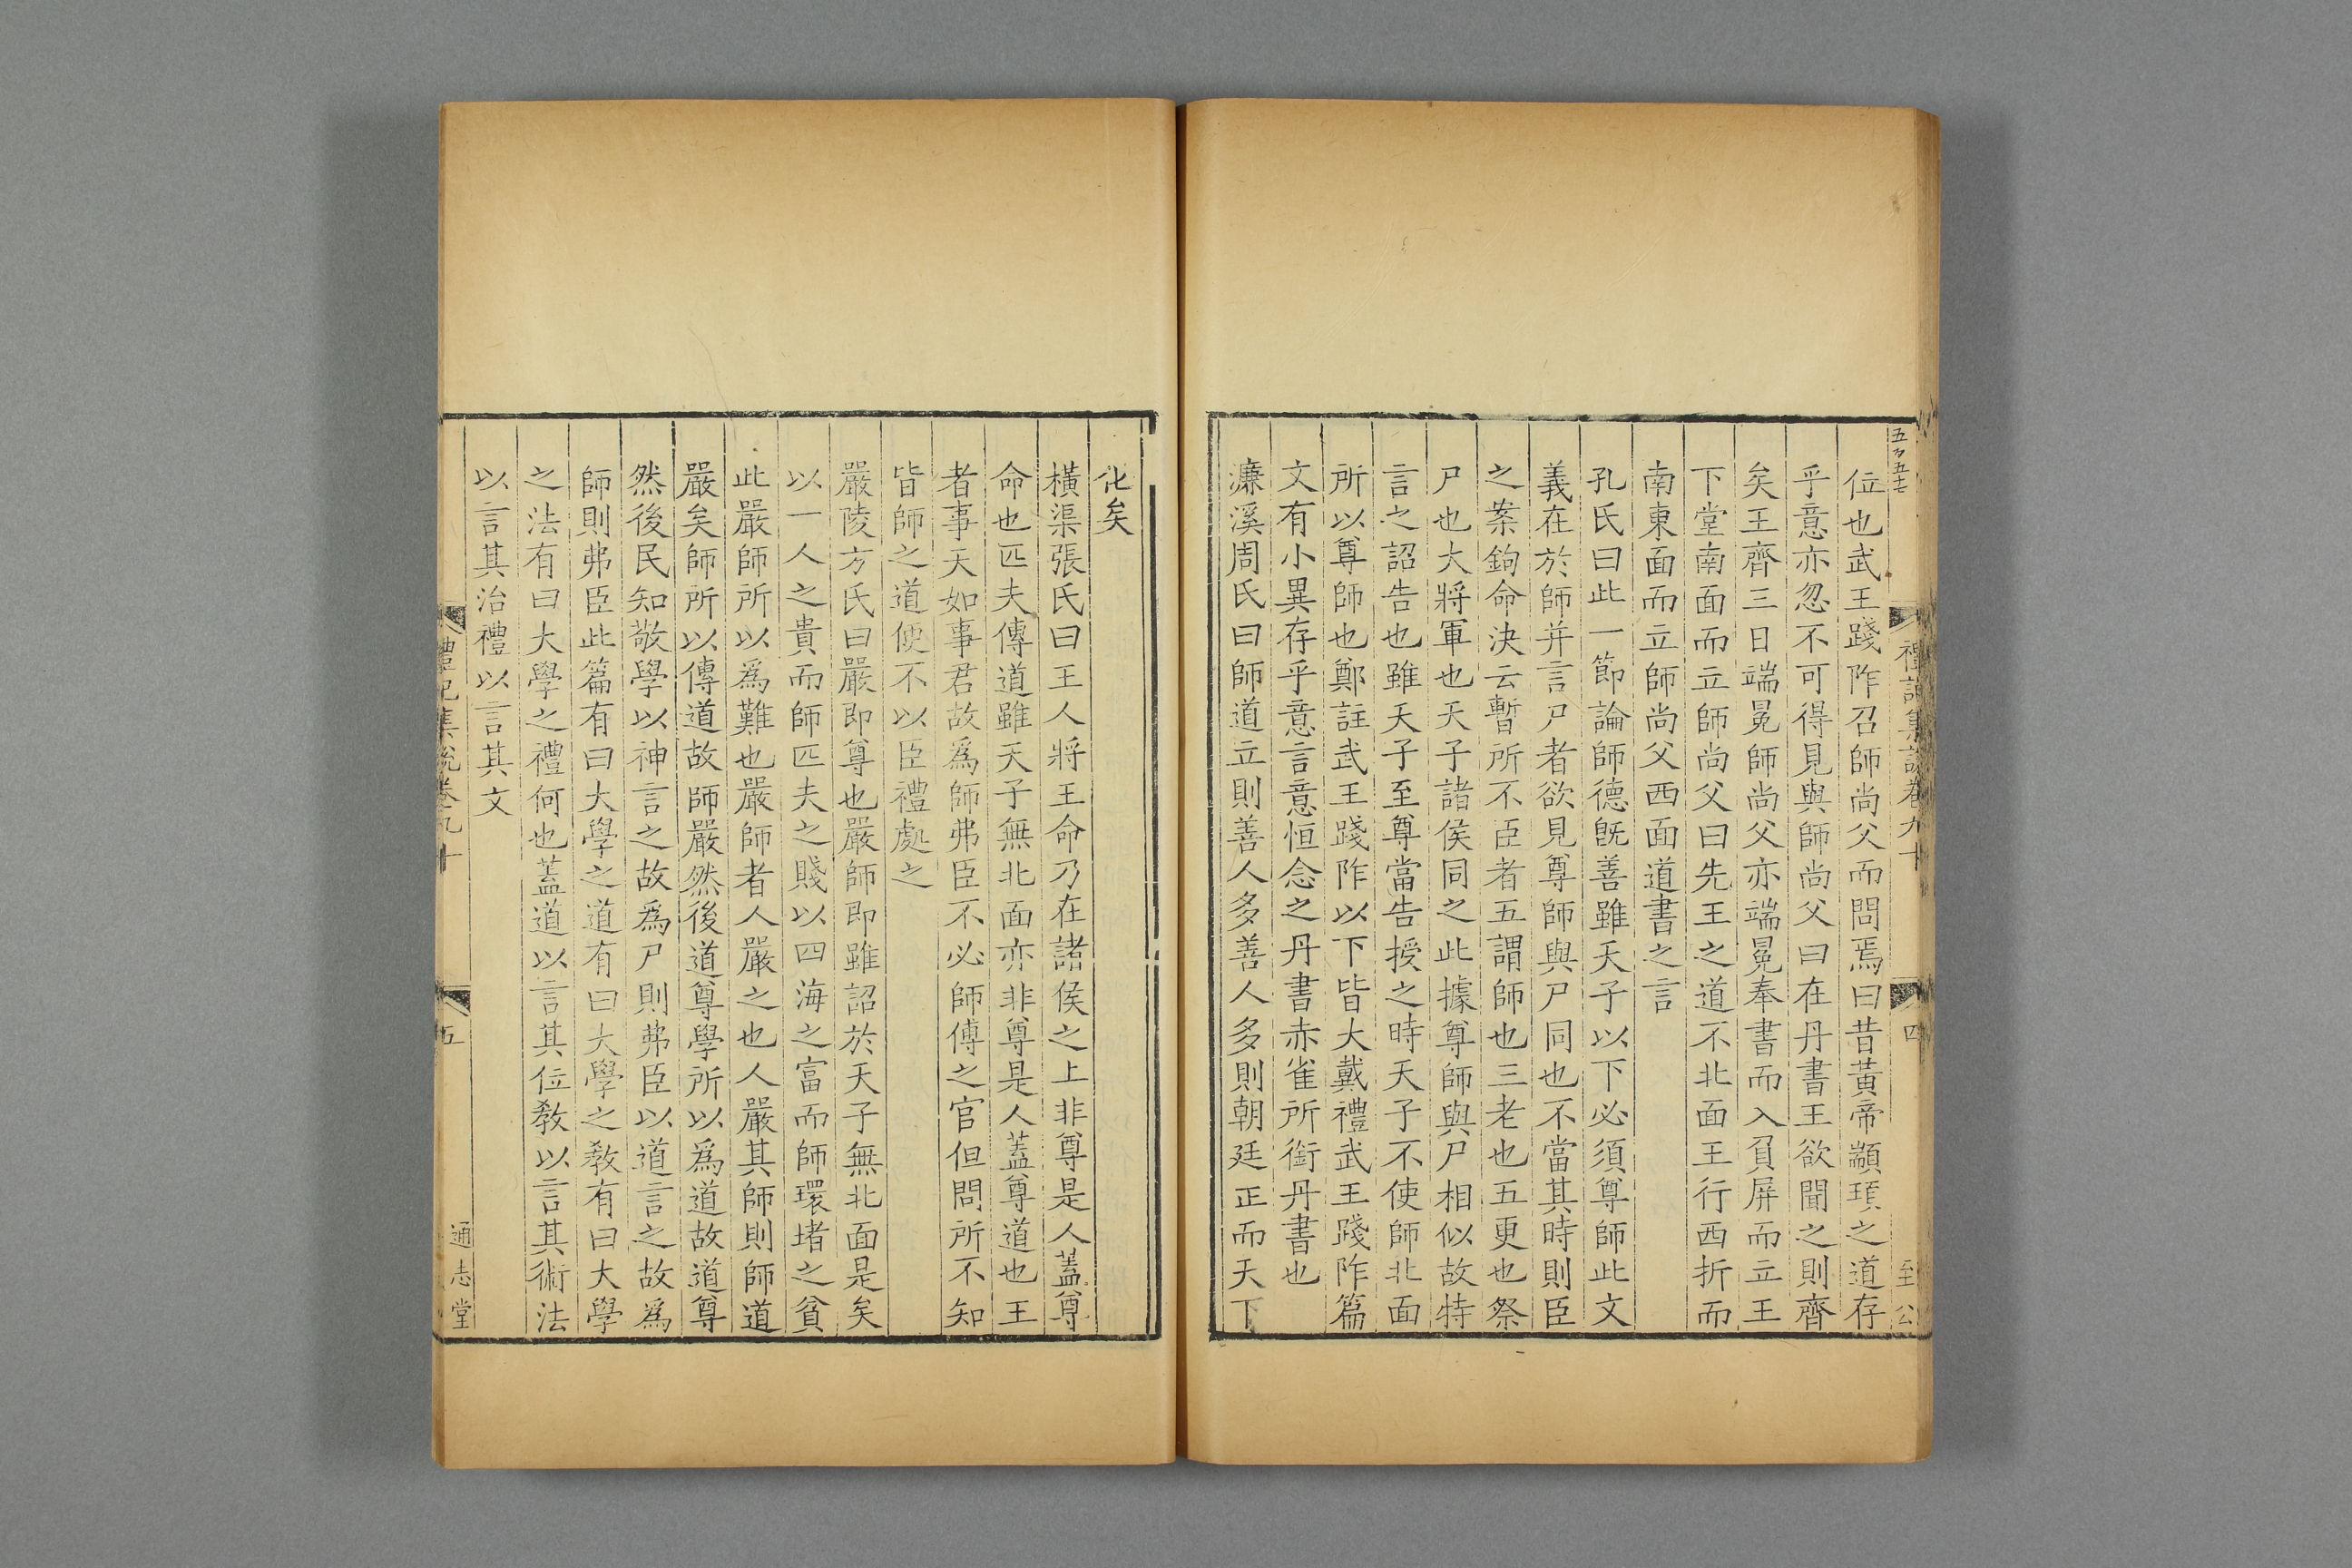 五百五十七
禮記集說卷九十
四
至公
位也武王踐阼召師尚父而問焉曰昔黃帝顓頊之道存
乎意亦忽不可得見與師尚父曰在丹書王欲聞之則齊
矣王齊三日端冕師尚父亦端冕奉書而入負屏而立王
下堂南面而立師尚父曰先王之道不北面王行西折而
南東面而立師尚父西面道書之言
孔氏曰此一節論師德旣善雖天子以下必須尊師此文
義在於師并言尸者欲見尊師與尸同也不當其時則臣
之案鉤命決云暫所不臣者五謂師也三老也五更也祭
尸也大將軍也天子諸侯同之此據尊師與尸相似故特
言之詔告也雖天子至尊當告授之時天子不使師北面
所以尊師也鄭註武王踐阼以下皆大戴禮武王踐阼篇
文有小異存乎意言意恒念之丹書赤雀所銜丹書也
濂溪周氏曰師道立則善人多善人多則朝廷正而天下
化矣
橫渠張氏曰王人將王命乃在諸侯之上非尊是人蓋尊
命也匹夫傳道雖天子無北面亦非尊是人蓋尊道也王
者事天如事君故爲師弗臣不必師傅之官但問所不知
皆師之道便不以臣禮處之
嚴陵方氏曰嚴即尊也嚴師即雖詔於天子無北面是矣
以一人之貴而師匹夫之賤以四海之富而師環堵之貧
此嚴師所以爲難也嚴師者人嚴之也人嚴其師則師道
嚴矣師所以傳道故師嚴然後道尊學所以爲道故道尊
然後民知敬學以神言之故爲尸則弗臣以道言之故爲
師則弗臣此篇有曰大學之道有曰大學之教有曰大學
之法有曰大學之禮何也蓋道以言其位教以言其術法
以言其治禮以言其文
禮記集說卷九十
五
通志堂